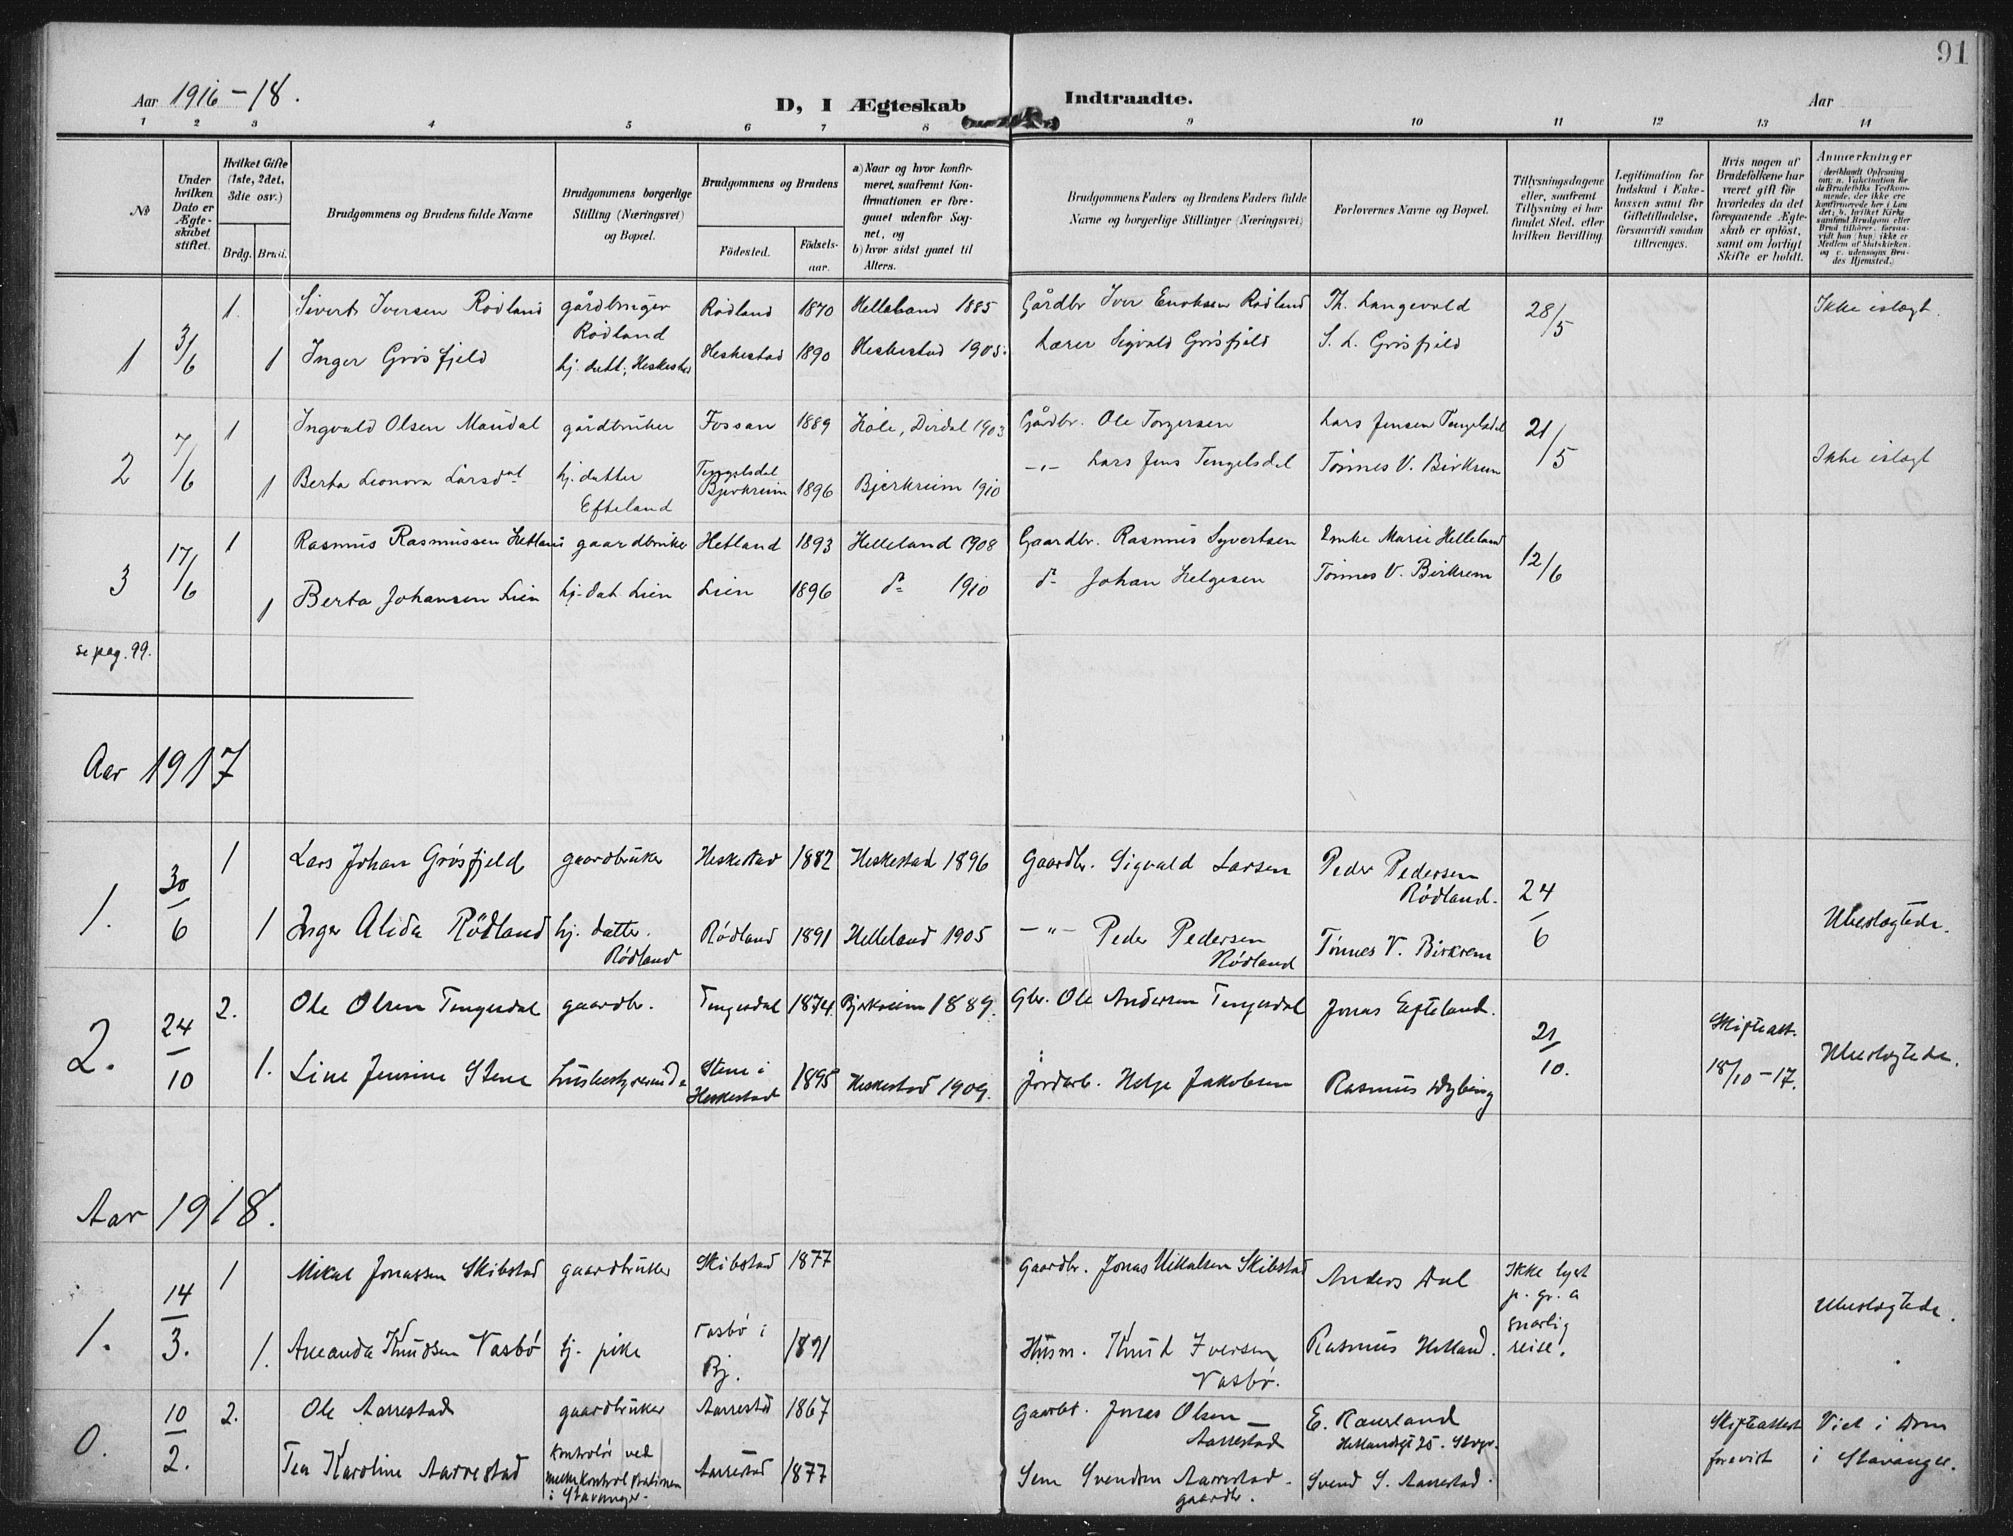 91
Aar 1916-18.
D, I Ægteskab Indtraadte.
Aar
1 2 3 4 5 6 7 8 9 10 11 12 13 14
№
Under hvilken Dato er Ægteskabet stiftet.
Hvilket Gifte (1ste, 2det, 3die osv.)
Brdg. Brud.
Brudgommens og Brudens fulde Navne
Brudgommens borgerlige Stilling (Næringsvei) og Bopæl.
Brudgommens og Brudens
Födested. Födselsaar.
a) Naar og hvor konfirmeret, saafremt Konfirmationen er foregaaet udenfor Sognet, og
b) hvor sidst gaaet til Alters.
Brudgommens Faders og Brudens Faders fulde Navne og borgerlige Stillinger (Næringsvei)
Forlovernes Navne og Bopæl.
Tillysningsdagene eller, saafremt Tillysning ei har fundet Sted, efter hvilken Bevilling.
Legitimation for Indskud i Enkekassen samt for Giftetilladelse, forsaavidt saadan tiltrænges.
Hvis nogen af Brudefolkene har været gift för hvorledes da det foregaaende Ægteskab er oplöst, samt om lovligt Skifte er holdt.
Anmærkninger
1 3/6 1. Sivert Iversen Rødland gårdbruger Rødland Rødland 1870 Helleland 1885 Gårdbr Iver Enoksen Rødland Th. Langevald 28/5 Ikke islegt.
1 Inger Grøsfjeld hj. datt., Heskestad Heskestad 1890 Heskestad 1905. Lærer Sigvald Grøsfjeld S. L. Grøsfjeld
2 7/6 1 Ingvald Olsen Maudal gårdbruker Fossan 1889 Høle, Dirdal 1903 Gårdbr. Ole Torgersen Lars Jensen Tengelsdal 21/5 Ikke islegt
1 Berta Leonora Larsdat hj. datter Efteland Tengelsdal Bjerkreim 1896 Bjerkreim 1910 -"- Lars Jens Tengelsdal Tønnes V. Birkrem
3 17/6 1 Rasmus Rasmussen Hetland gaardbruker Hetland 1893 Helleland 1908 Gaardbr. Rasmus Syvertsen Enke Marie Helleland 12/6
1 Berta Johansen Lien hj. dat Lien Lien 1896 do 1910 do Johan Helgesen Tønnes V. Birkrem
se pag. 99.
Aar 1917
1. 30/6 1 Lars Johan Grøsfjeld gaardbruker Heskestad 1882 Heskestad 1896 Gaardbr. Sigvald Larsen Peder Pedersen Rødland. 24/6 Ubeslægtede.
1 Inger Alida Rødland hj. datter. Rødland Rødland 1891 Helleland 1905 -"- Peder Pedersen Rødland Tønnes V. Birkrem
2. 24/10 2. Ole Olsen Tengesdal gaardbr. Tengesdal 1874 Bjerkreim 1889. Gbr. Ole Andersen Tengesdal Jonas Efteland. 21/10. Skifteatt. 18/10-17. Ubeslægtede.
1. Line Jensine Stene husbestyrerinde Stene i Heskestad 1895 Heskestad 1909. Jordarb. Helge Jakobsen Rasmus Dybing
Aar 1918.
1. 14/3. 1 Mikal Jonassen Skibstad gaardbruker Skibstad 1877 Gaardbr. Jonas Mikalsen Skibstad Anders Dal Ikke lyst p. gr. a snarlig reise. Ubeslægtede.
1. Amanda Knudsen Vasbø tj. pike Vasbø i Bj. 1891 Husm. Knud Iversen Vasbø. Rasmus Hetland.
0. 10/2. 2. Ole Aarrestad gaardbruker Aarrestad 1867 Gaardbr. Jonas Olsen Aarrestad E. Raugland Hetlandsgt 25. Stvgr. Skifteattest forevist Viet i Dom i Stavanger.
Tea Karoline Aarrestad kontrolør ved melkekontrol stationen i Stavanger. Aarrestad 1877 Sem Svendsen Aarrestad. gaardbr. Svend S. Aarrestad.